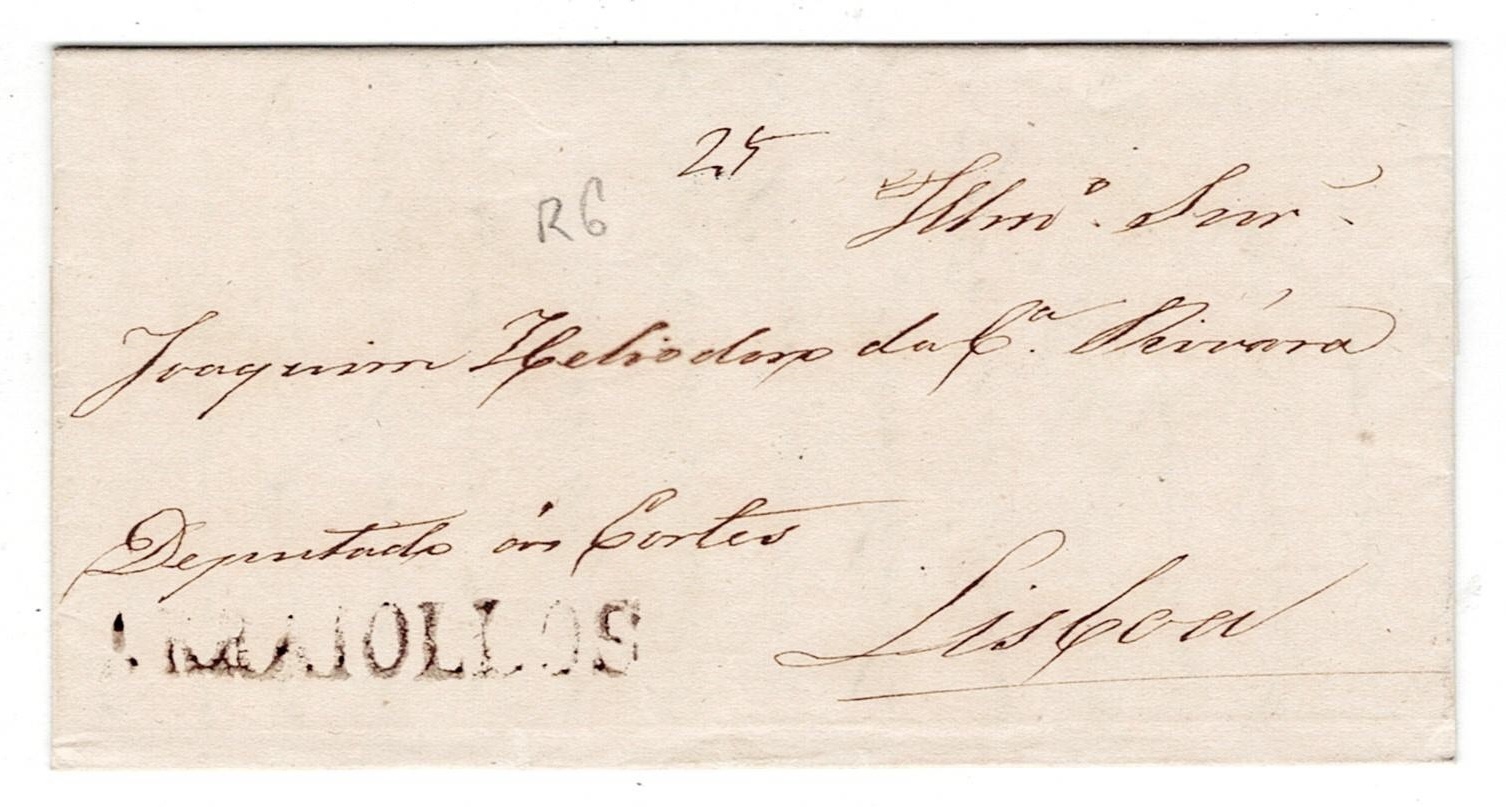 25
R6
Illmº. Snr.
Joaquim Heliodoro da Cª. Rivára
Deputado ás Cortes
ARRAIOLLOS
Lisboa